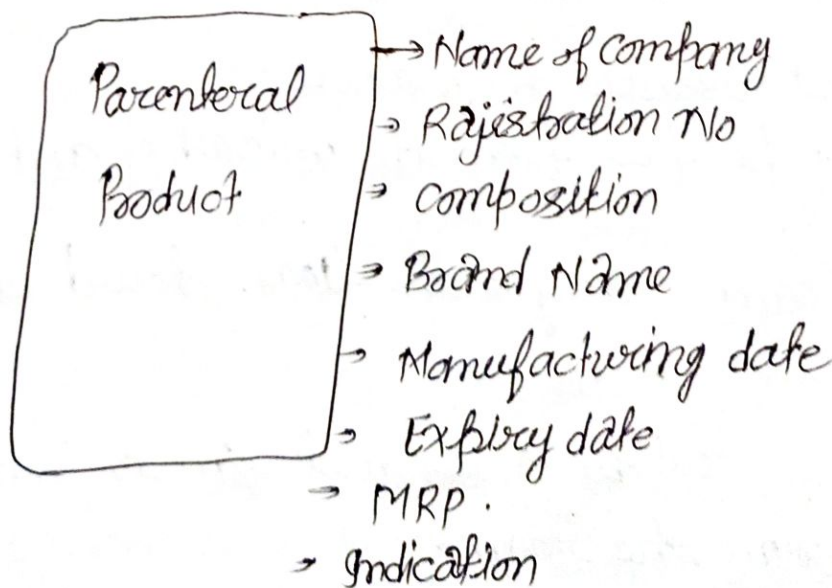 Parenteral
Product
→ Name of Company
→ Rajistration No
→ Composition
→ Brand Name
→ Manufacturing date
→ Expiry date
→ MRP.
→ Indication